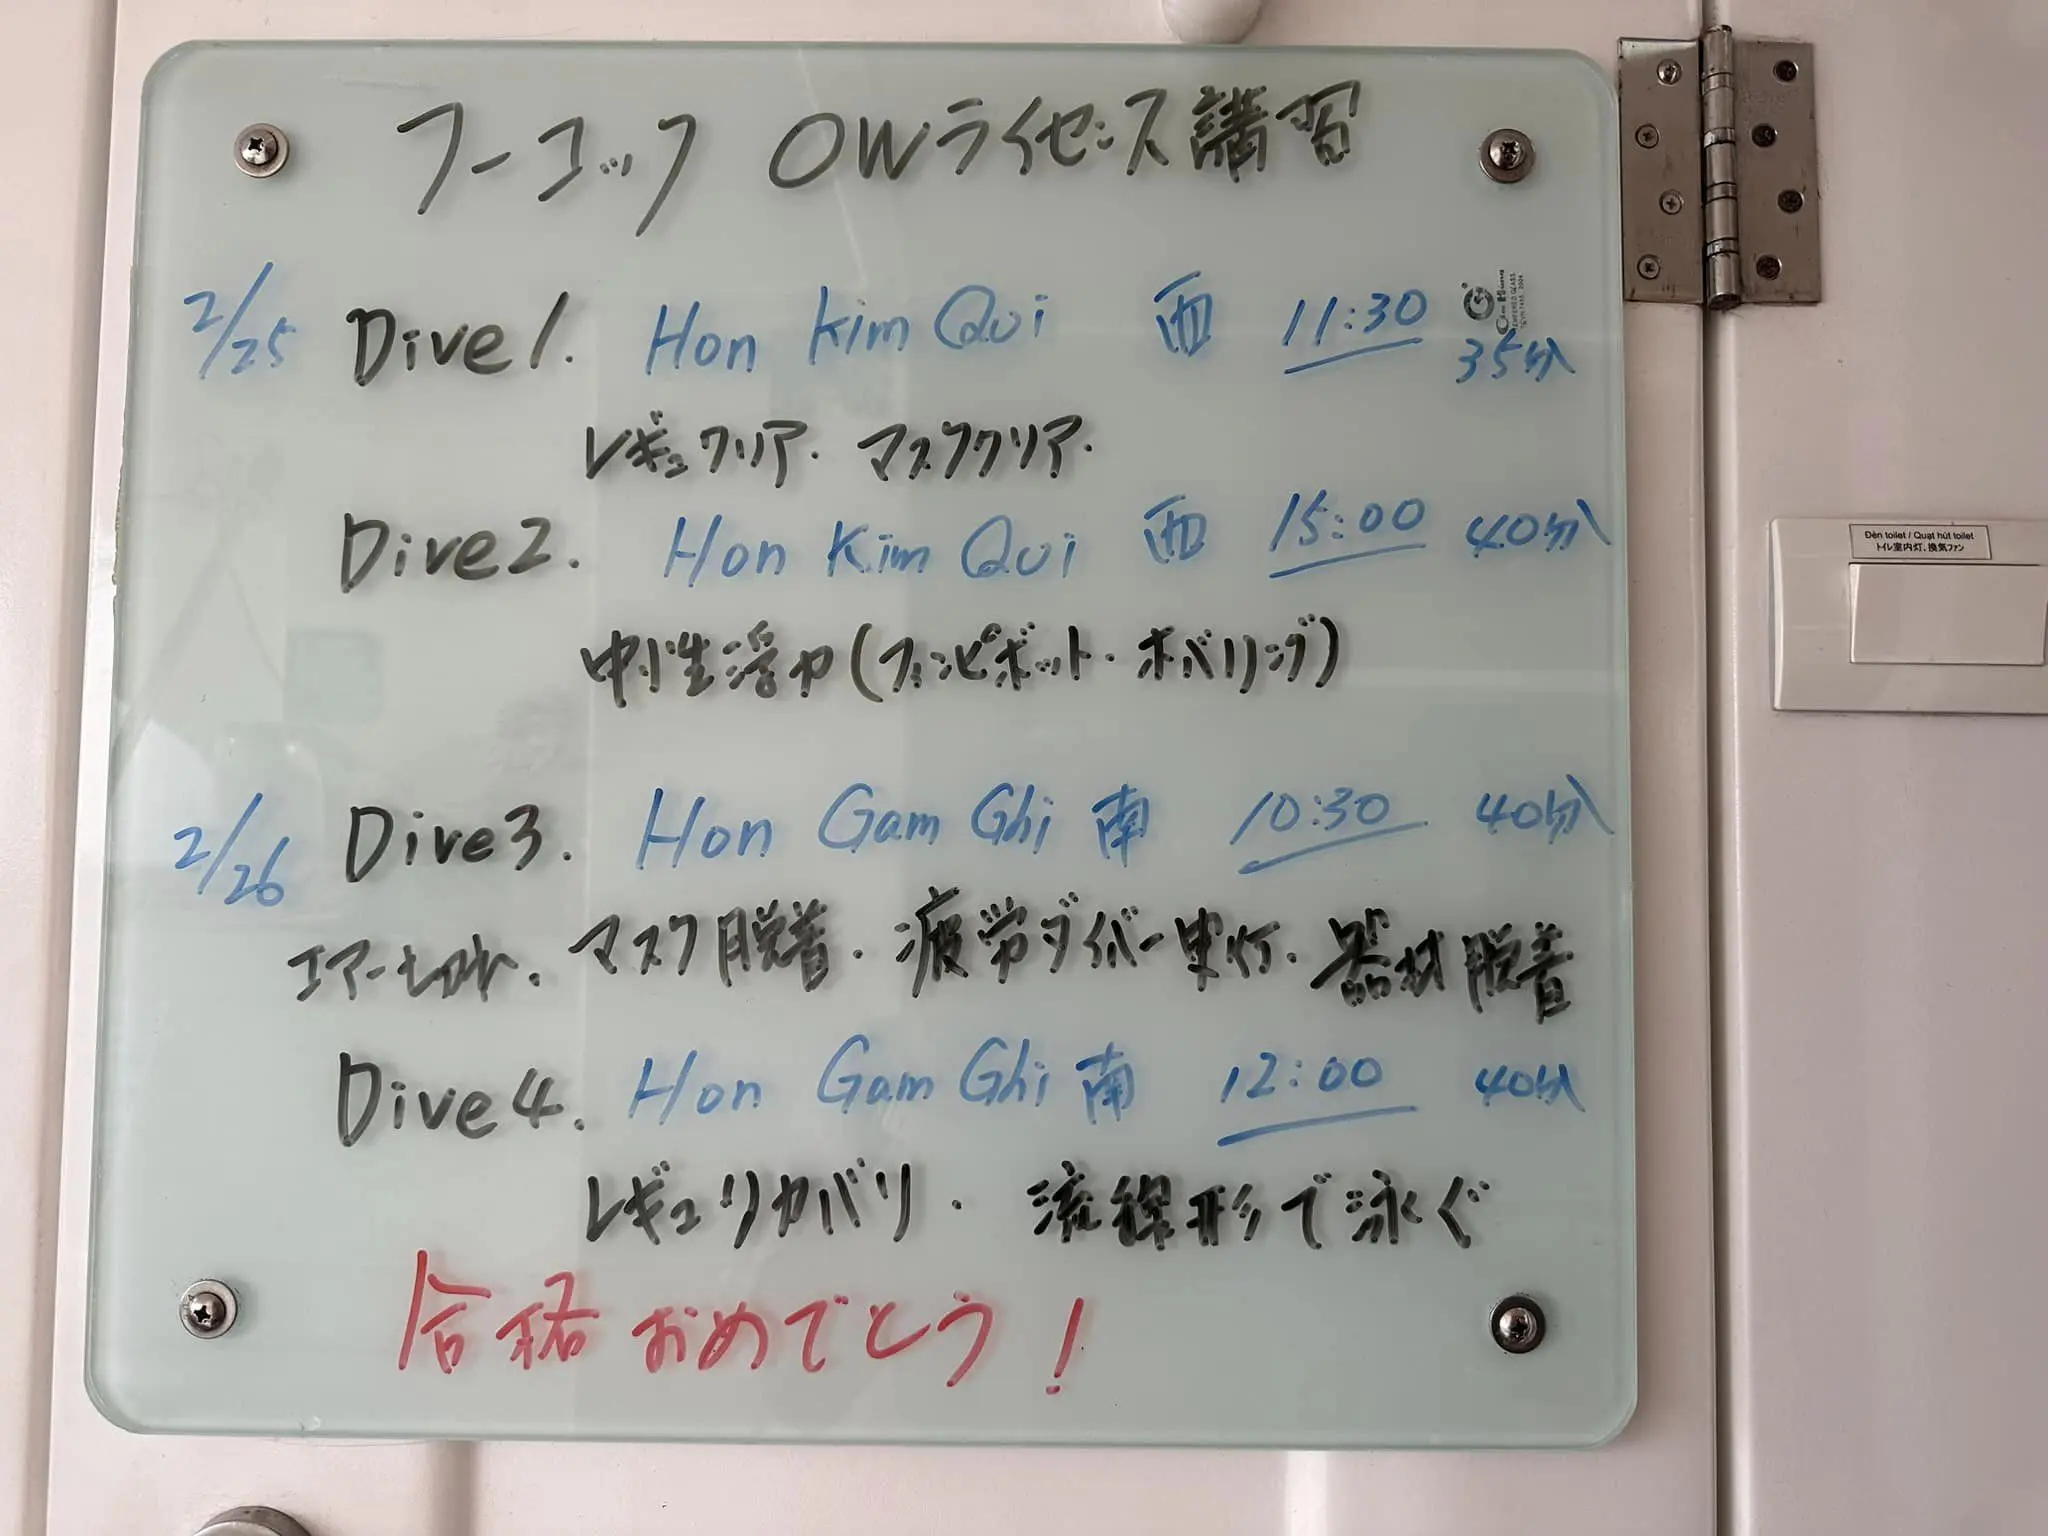 フーコック OWライセンス講習
2/25 Dive1. Hon Kim Qui 西 11:30 35分
レギュクリア・マスククリア・
Dive2. Hon Kim Qui 西 15:00 40分
中性浮力(フィンピボット・ホバリング)
2/26 Dive3. Hon Gam Ghi 南 10:30 40分
エアー切れ・マスク脱着・疲労ダイバー曳行・器材脱着
Dive4. Hon Gam Ghi 南 12:00 40分
レギュリカバリ・流線形で泳ぐ
合格おめでとう!
Đèn toilet / Quạt hút toilet
トイレ室内灯、換気ファン